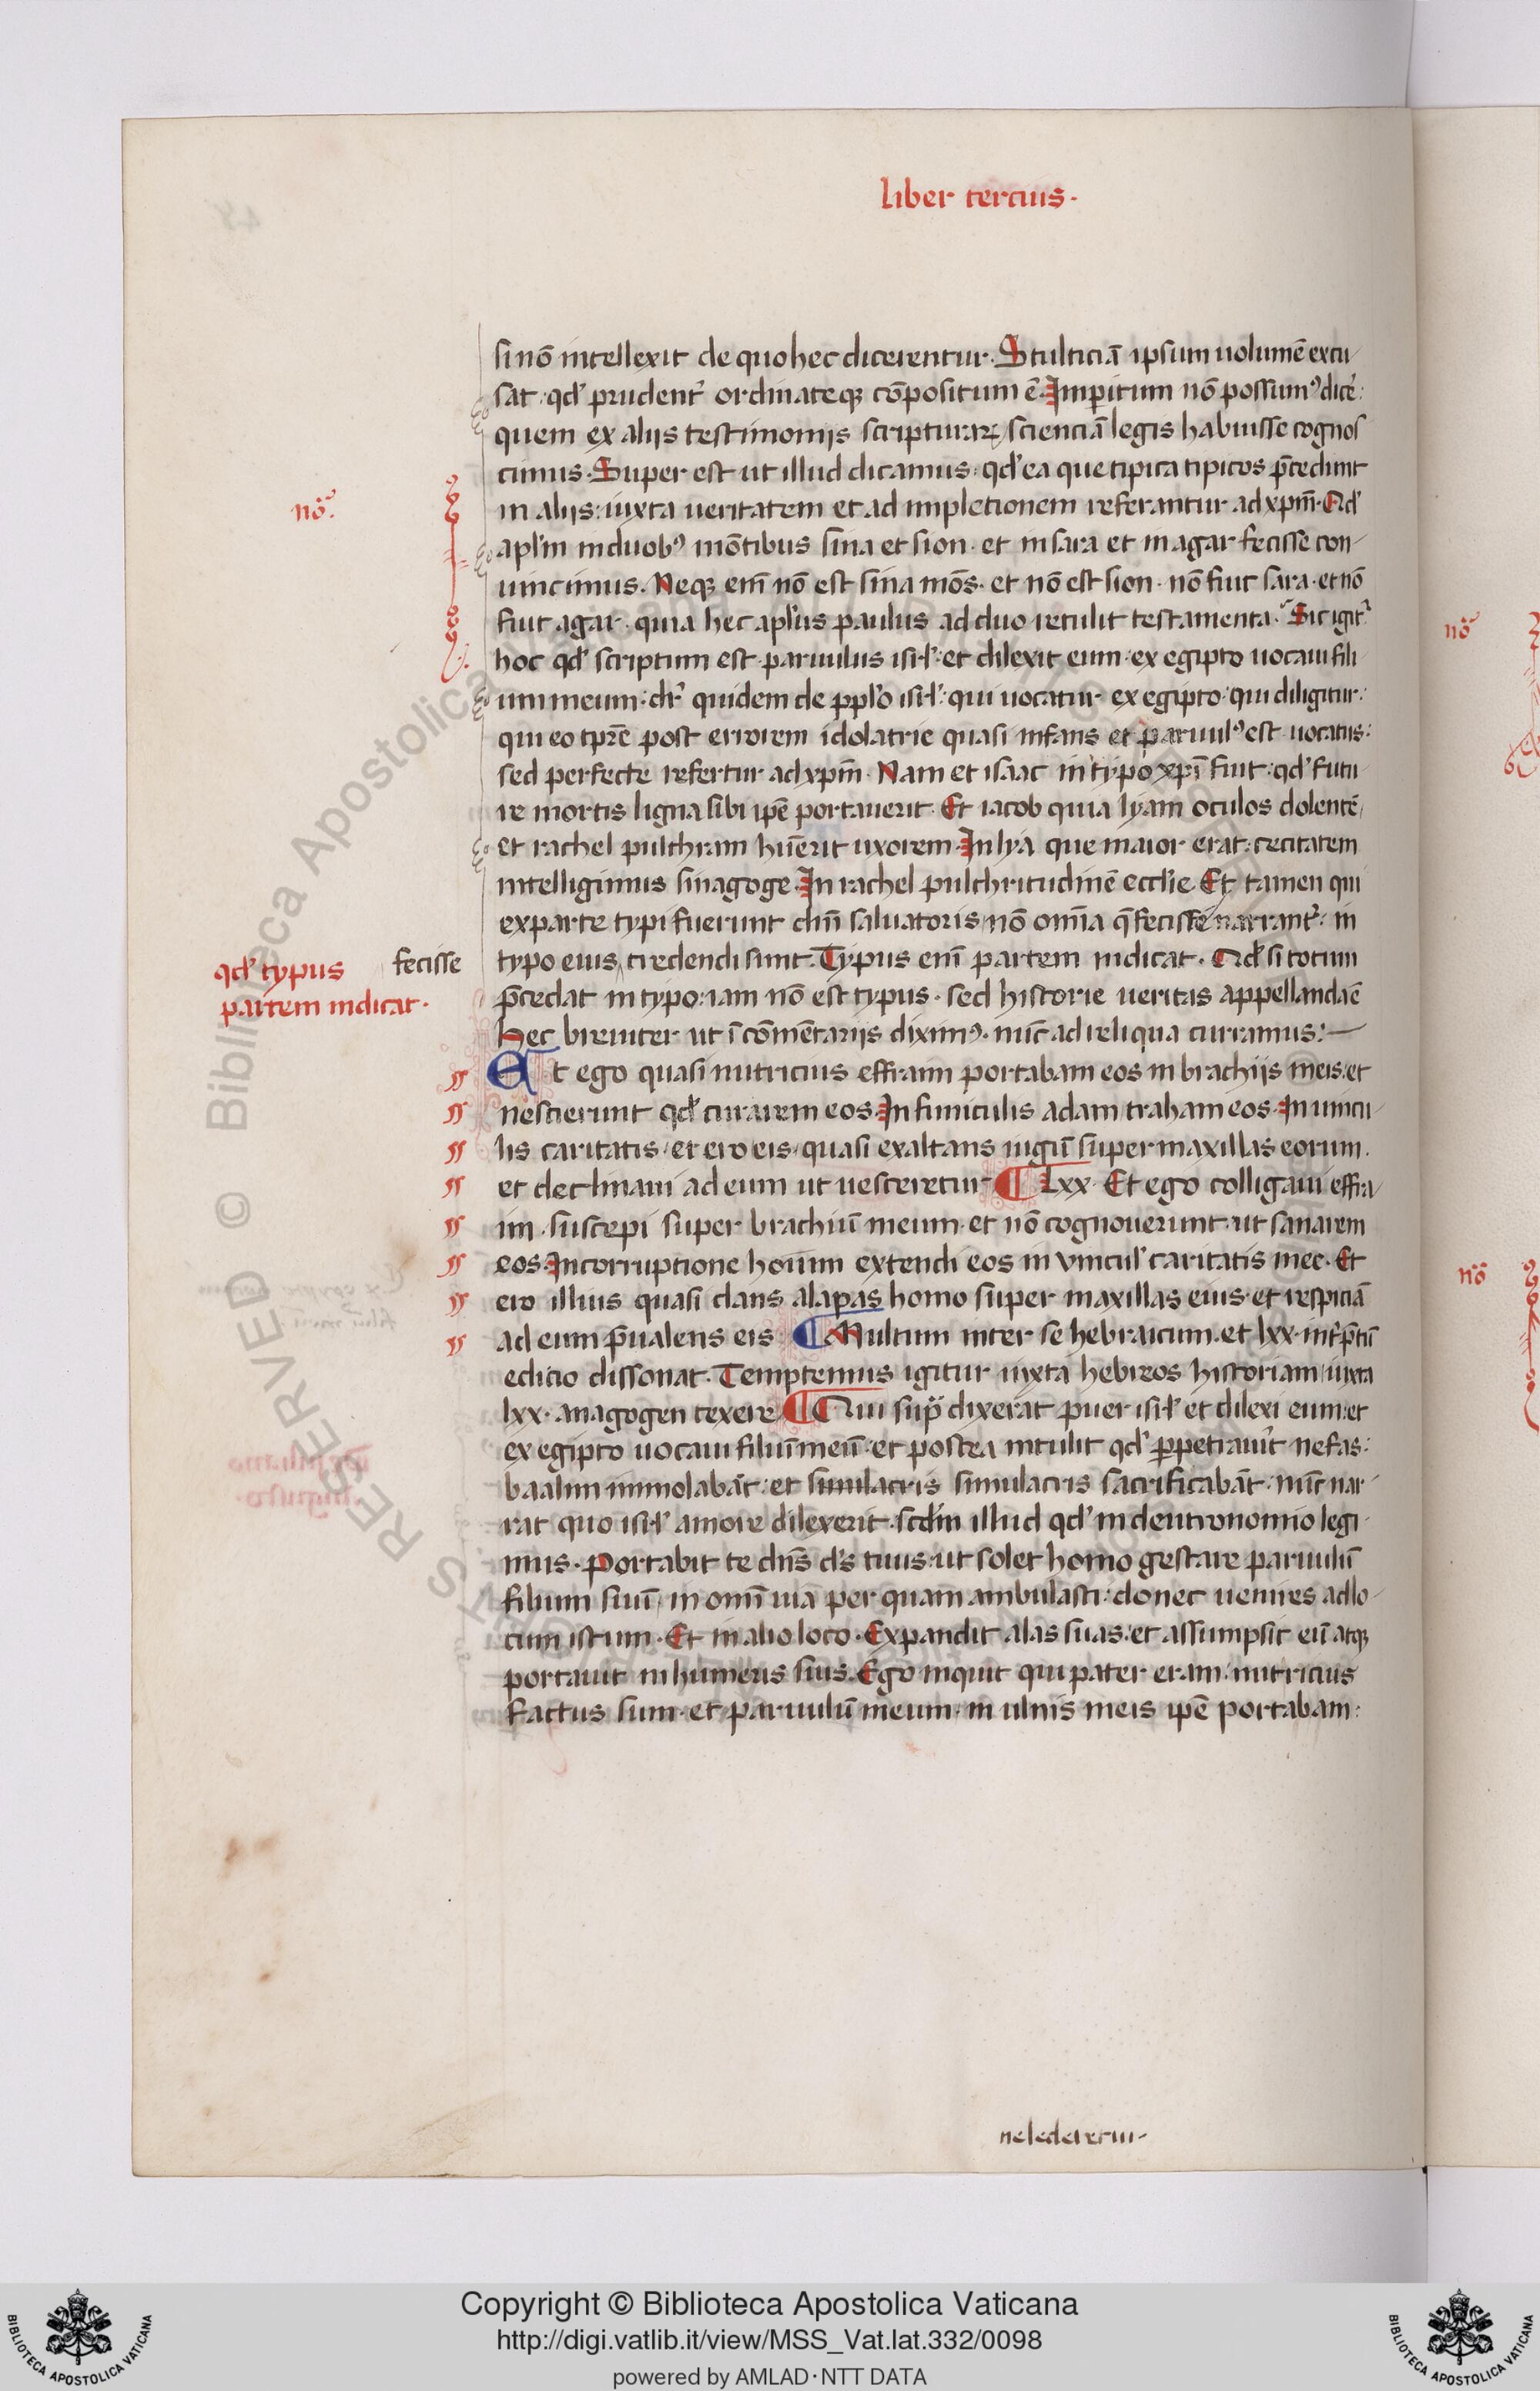 liber tercius·
si nō intellexit de quo hec dicerentur. Stulticiā ipsum uolumē excu-
sat. qd' prudent̄ ordinateqȝ cōpositum ē. Imperitum nō possum⁹ dicē:
quem ex alijs testimonijs scripturaꝝ scienciā legis habuisse cognos
cimus. Super est ut illud dicamus: qd' ea que tipica tipicos p̄cedunt
in alijs: iuxta ueritatem et ad impletionem referantur ad xp̄m. Qd'
apl'm in duob⁹ mōtibus sina et sion. et in sara et in agar fecisse con-
uincimus. Neqȝ em̄ nō est sina mōs. et nō est sion. nō fuit sara. et nō
fuit agar. quia hec apl'us paulus ad duo retulit testamenta. Sic igit̄
hoc qd' scriptum est. paruulus isrł: et dilexit eum. ex egipto uocaui fili
um meum. dr̄ quidem de ppl'o isrł: qui uocatur ex egipto: qui diligitur:
qui eo tp̄re post errorem idolatrie quasi infans et paruul⁹ est uocatus:
sed perfecte refertur ad xp̄m. Nam et isaac in typo xp̄i fuit: qd' futu-
re mortis ligna sibi ip̄e portauerit. Et iacob quia lyam oculos dolentē,
et rachel pulchram hūerit uxorem. In lya que maior erat: cecitatem
intelligimus sinagoge. In rachel pulchritudinē eccl'ie. Et tamen qui
ex parte typi fuerunt dn̄i saluatoris, nō om̄ia q̄ fecisse narrant̄: in
qd' typus
partem indicat·
fecisse
typo eius, credendi sunt. Typus eni partem indicat. Qd' si totum
p̄cedat in typo: iam nō est typus. sed historie ueritas appellanda ē
Hec breuiter ut ī cōmētarijs diximꝰ. nūc ad reliqua curramus:—
Et ego quasi nutricius effraim portabam eos in brachijs meis. et
nescierunt qd' curarem eos. In funiculis adam traham eos. In uincu-
lis caritatis. et ero eis quasi exaltans iugū super maxillas eorum.
et declinaui ad eum ut uesceretur ¶ Lxx. Et ego colligaui effra-
im. suscepi super brachiū meum. et nō cognouerunt. ut sanarem
eos. In corruptione hoīum extendi eos in vincul' caritatis mee. Et
ero illius quasi dans alapas homo super maxillas eius. et respiciā
ad eum p̄ualens eis ¶ Multum inter se hebraicum. et lxx. int̄p̄tū
edicio dissonat. Temptemus igitur iuxta hebreos historiam, iuxta
lxx. anagogen texere ¶ Qui sup̄ dixerat puer isrł et dilexi eum: et
ex egipto uocaui filiū meū. et postea intulit qd' ꝑpetrauit nefas:
baalim immolabāt: et simulacris simulacris sacrificabāt. nūc nar-
rat quo isrł amore dilexerit. scd'm illud qd' in deutronomio legi-
mus. Portabit te dn̄s ds̄ tuus: ut solet homo gestare paruulū
filium suū, in om̄i uia per quam ambulasti: donec uenires ad lo-
cum istum. Et in alio loco. Expandit alas suas. et assumpsit eū atqȝ
portauit in humeris suis. Ego inquit qui pater eram. nutricius
factus sum. et paruulū meum. in ulnis meis ip̄e portabam:
ne lederetur-
Copyright © Biblioteca Apostolica Vaticana
http://digi.vatlib.it/view/MSS_Vat.lat.332/0098
powered by AMLAD·NTT DATA